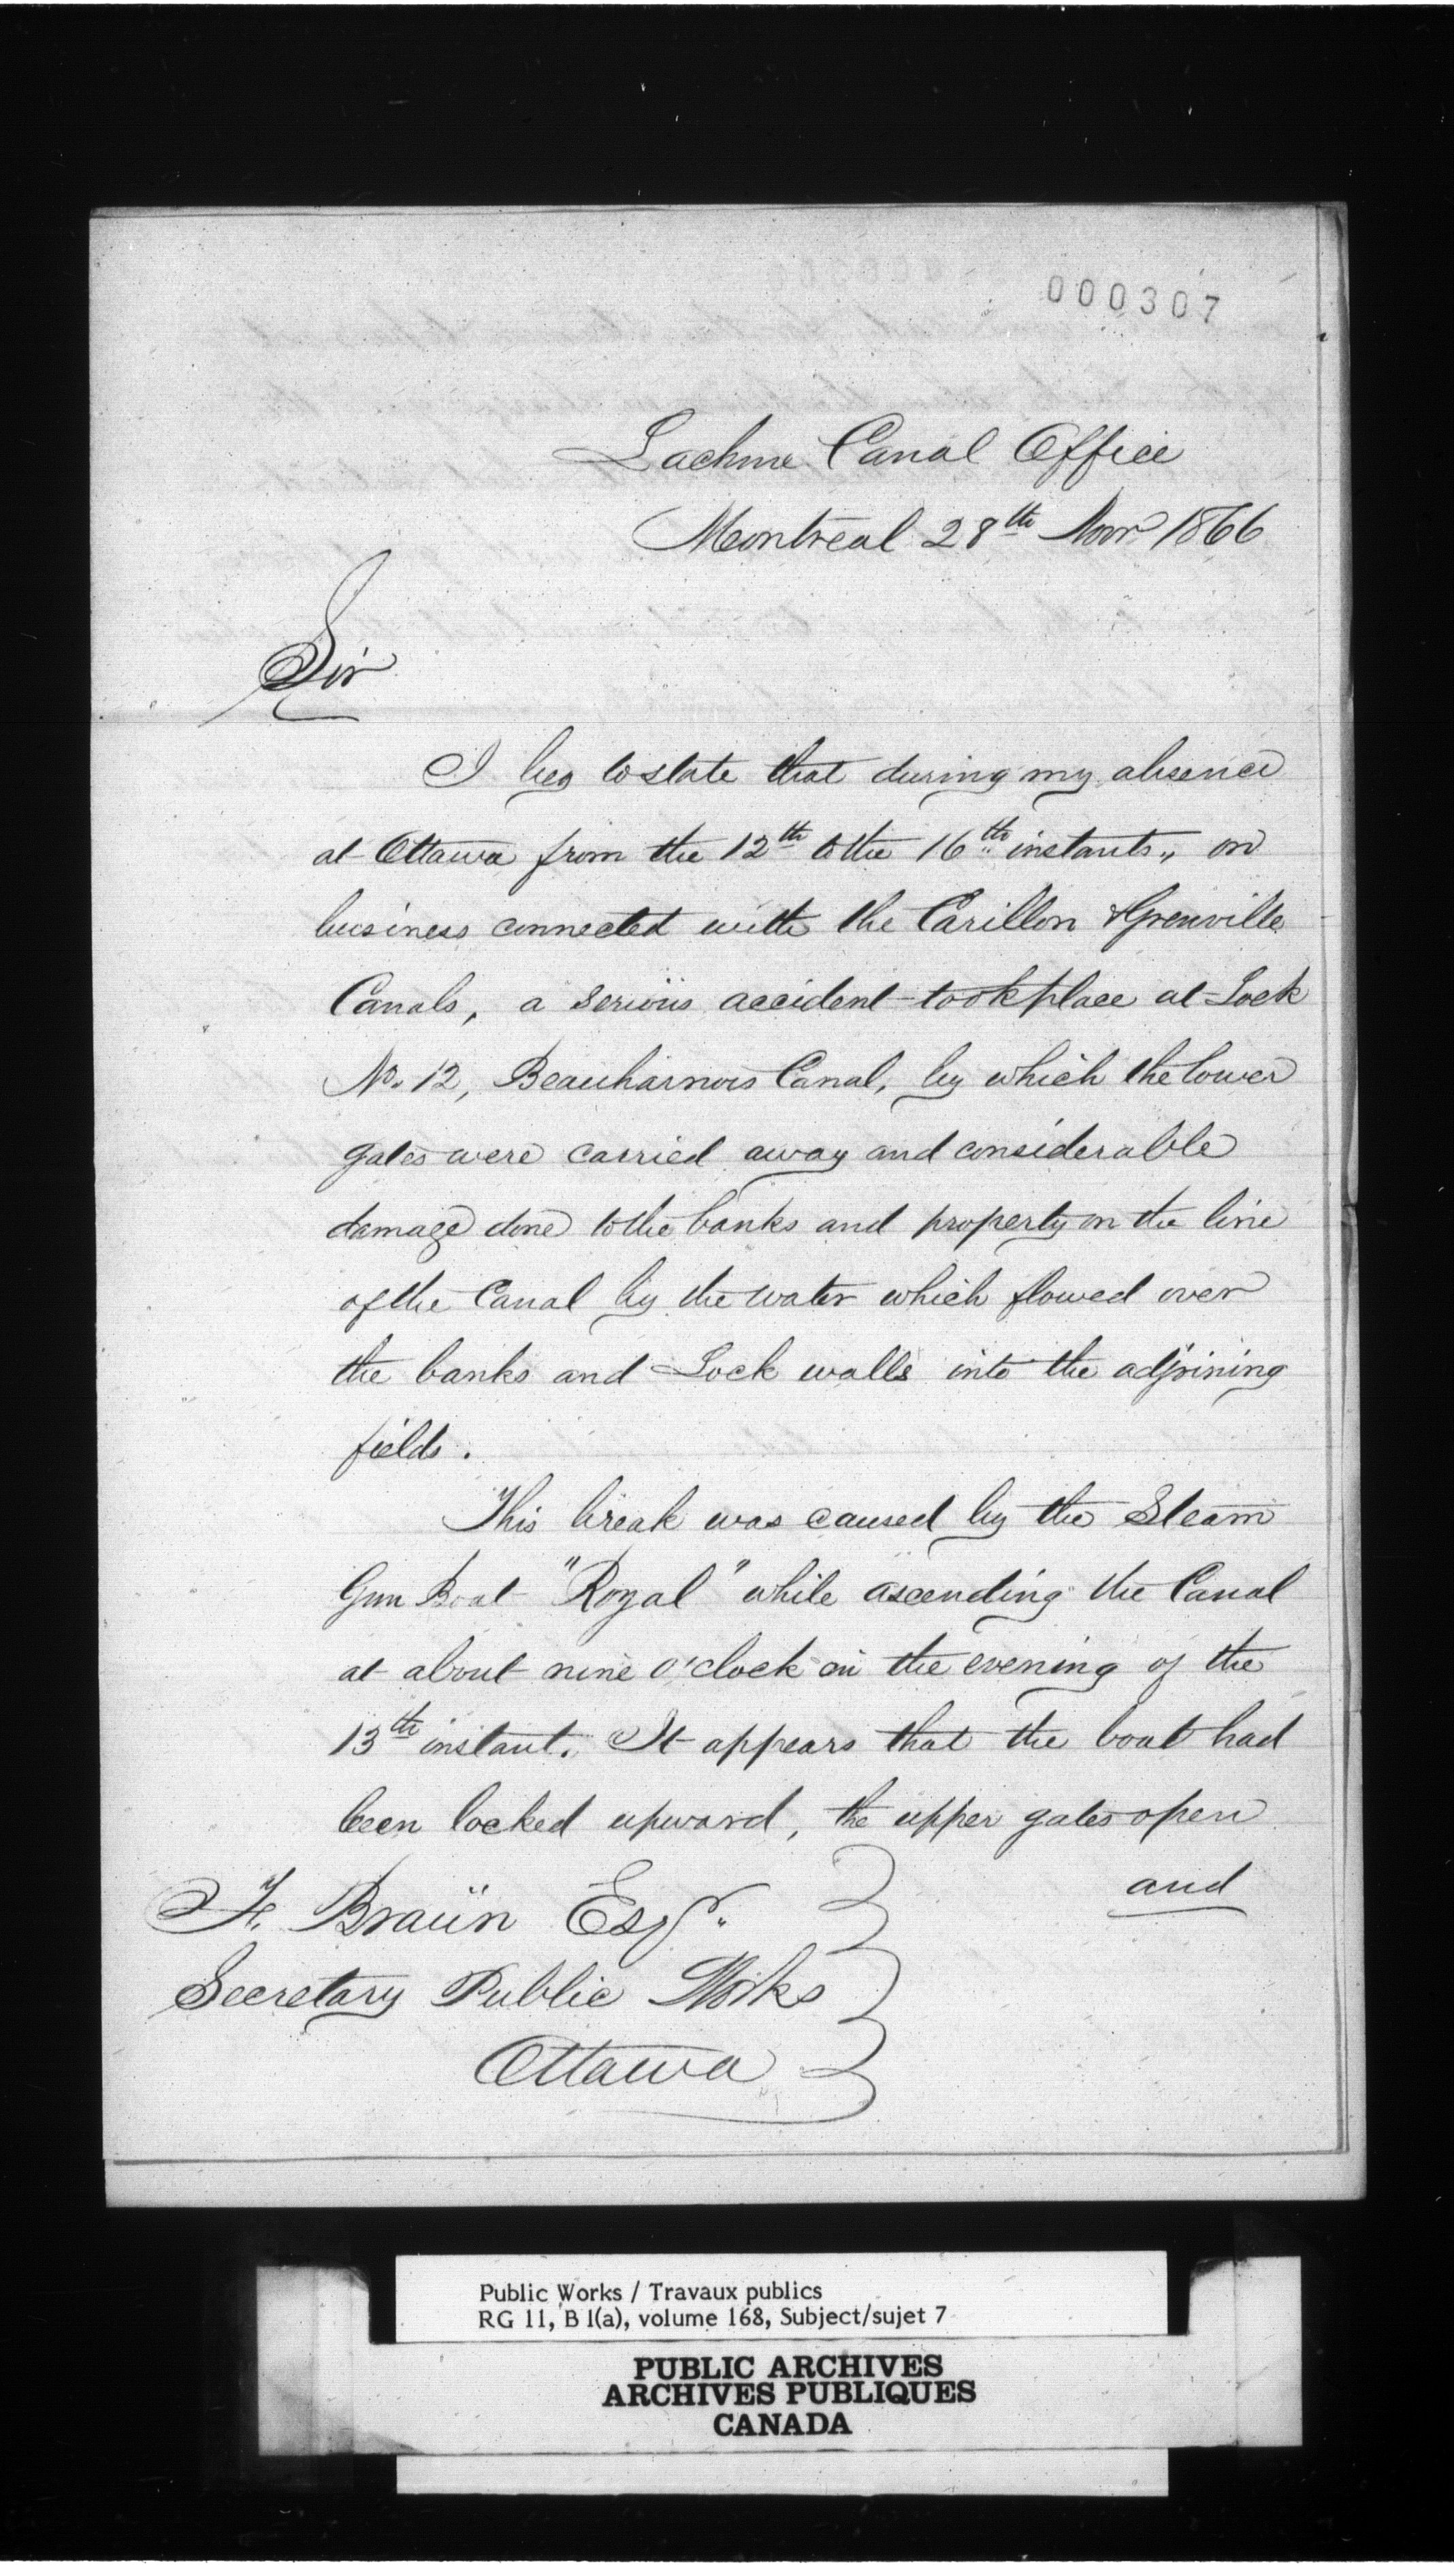 000307
Lachine Canal Office
Montreal 28th Novr 1866
Sir
I beg to state that during my absence
at Ottawa from the 12th to the 16th instants,, on
business connected with the Carillon & Grenville
Canals, a serious accident took place at Lock
No. 12, Beauharnois Canal, by which the lower
gates were carried away and considerable
damage done to the banks and property on the line
of the Canal by the water which flowed over
the banks and Lock walls into the adjoining
fields.
This break was caused by the Steam
Gun Boat "Royal" while ascending the Canal
at about nine o'clock on the evening of the
13th instant. It appears that the boat had
been locked upward, the upper gates open
and
F. Braün Esqr.
Secretary Public Works
Ottawa
Public Works / Travaux publics
RG 11, B 1(a), volume 168, Subject/sujet 7
PUBLIC ARCHIVES
ARCHIVES PUBLIQUES
CANADA